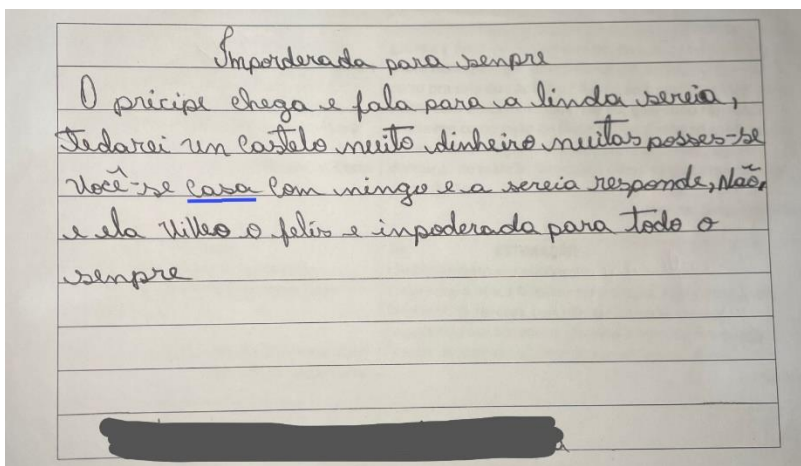 Imporderada para senpre
O pricipe chega e fala para a linda sereia,
tedarei un castelo muito dinheiro muitas posses-se
você-se casa com mingo e a sereia responde, Não,
e ela viveo o felis e inpoderada para todo o
senpre